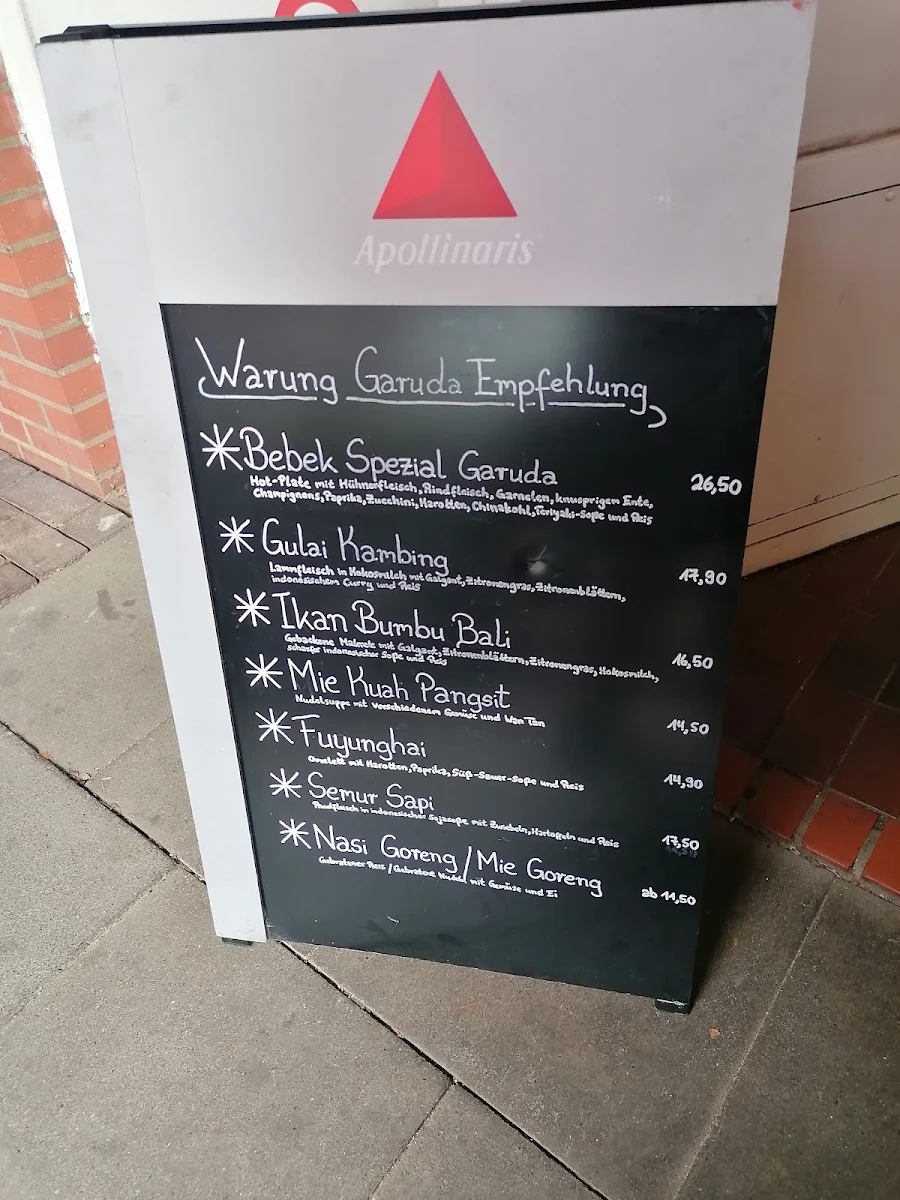 Apollinaris
Warung Garuda Empfehlung
Bebek Spezial Garuda
Hot-Plate mit Hühnerfleisch, Rindfleisch, Garnelen, knusprigem Ente,
Champignons, Paprika, Zucchini, Karotten, Chinakohl, Teriyaki-Soße und Reis
26,50
Gulai Kambing
Lammfleisch in Kokosmilch mit Galgant, Zitronengras, Zitronenblättern,
indonesischem Curry und Reis
17,90
Ikan Bumbu Bali
Gebackene mit Galgant, Zitronenblättern, Zitronengras, Kokosmilch,
scharfe indonesischer Soße und Reis
16,50
Mie Kuah Pangsit
Nudelsuppe mit verschiedenem Gemüse und Wan Tan
14,50
Fuyunghai
Omelett mit Karotten, Paprika, Süß-Sauer-Soße und Reis
14,90
Semur Sapi
Rindfleisch in indonesischer Sojasoße mit Zwiebeln, Kartoffeln und Reis
17,50
Nasi Goreng / Mie Goreng
Gebratener Reis / Gebratene Nudeln mit Gemüse und Ei
ab 11,50